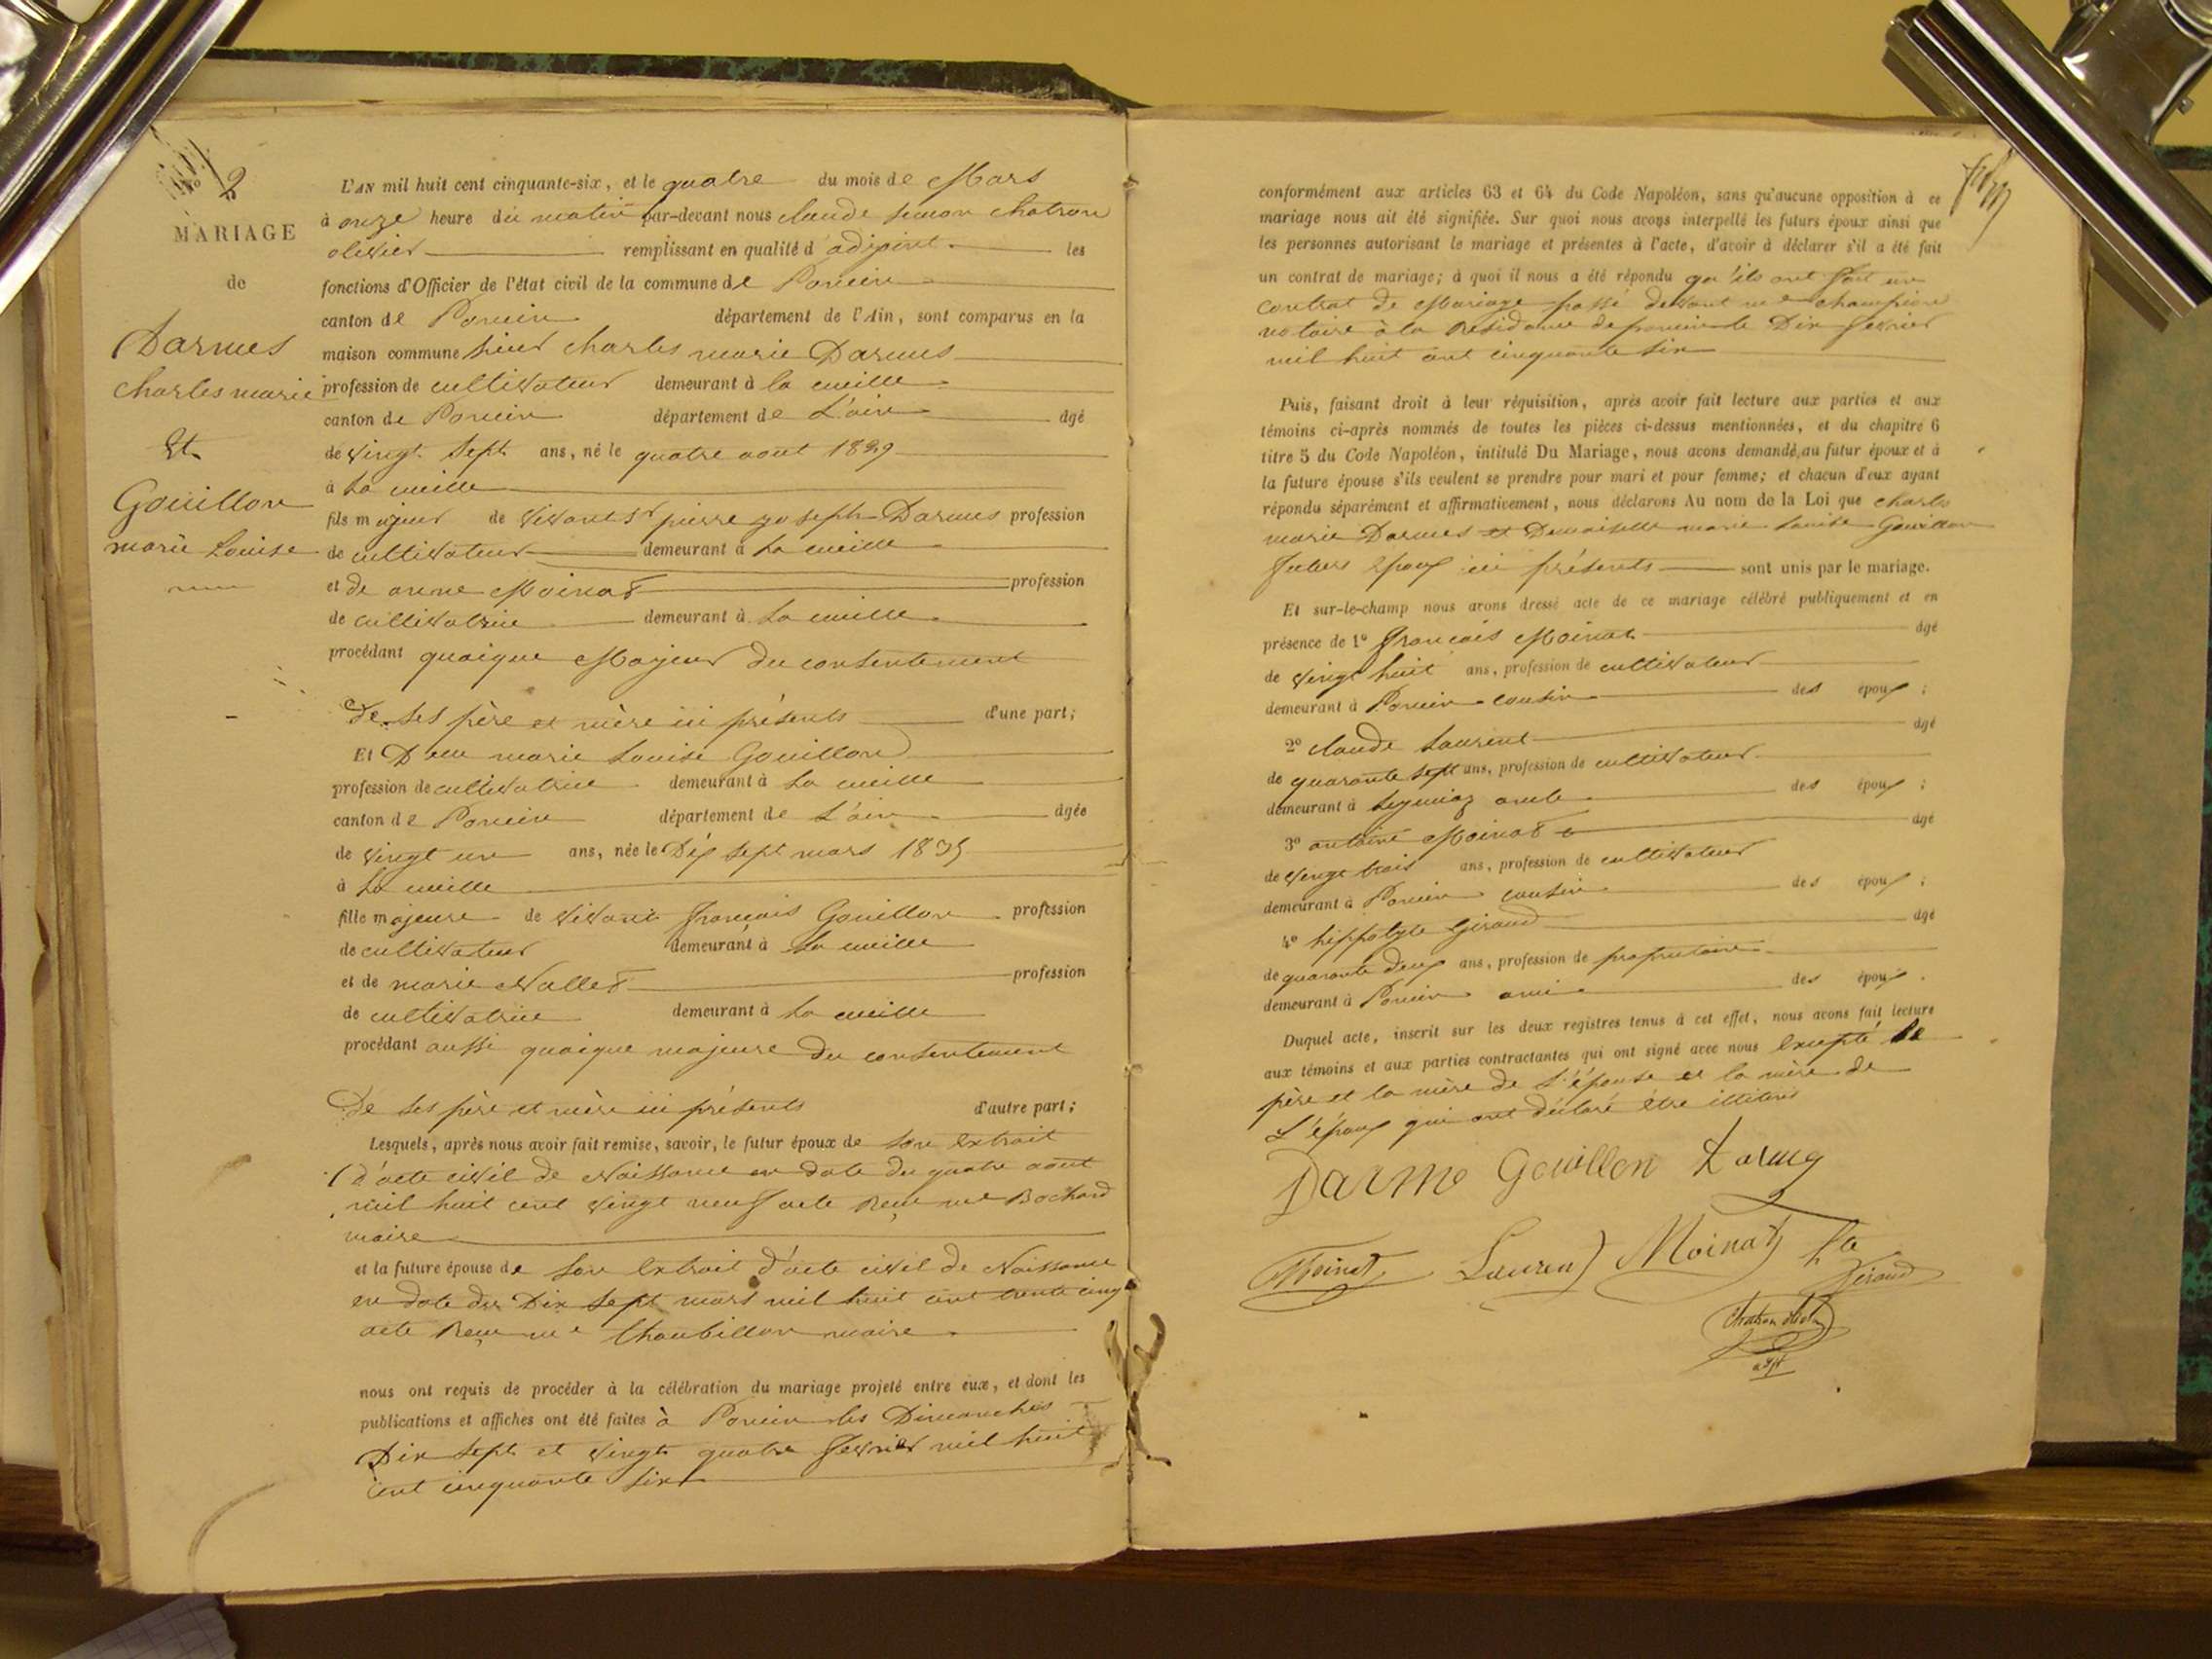 No 2
MARIAGE
de
Darmes
Charles marie
Et
Gouillon
marie Louise
L'AN mil huit cent cinquante-six, et le quatre du mois de Mars
à onze heure du matin par-devant nous claude simon chatron
olivier remplissant en qualité d'adjoint les
fonctions d'Officier de l'état civil de la commune de Poncin
canton de Poncin département de l'Ain, sont comparus en la
maison commune sieur charles marie Darmes
profession de cultivateur demeurant à la cueille
canton de Poncin département de L'ain âgé
de vingt sept ans, né le quatre aout 1829
à La cueille
fils majeur de vivant Sr pierre joseph Darmes profession
de cultivateur demeurant à La cueille
et de anne Moinat profession
de cultivatrice demeurant à La cueille
procédant quoique Majeur du consentement
De ses père et mère ici présents d'une part;
Et Delle marie Louise Gouillon
profession de cultivatrice demeurant à La cueille
canton de Poncin département de L'ain âgée
de vingt un ans, née le Dix sept mars 1835
à La cueille
fille majeure de vivant françois Gouillon profession
de cultivateur demeurant à La cueille
et de marie Nallet profession
de cultivatrice demeurant à La cueille
procédant aussi quoique majeure du consentement
De ses père et mère ici présents d'autre part;
Lesquels, après nous avoir fait remise, savoir, le futur époux de son Extrait
d'acte civil de Naissance en date du quatre aout
mil huit cent vingt neuf acte Reçu me Bochard
maire
et la future épouse de son Extrait d'acte civil de Naissance
en date du Dix sept mars mil huit cent trente cinq
acte Reçu me Chambillon maire
nous ont requis de procéder à la célébration du mariage projeté entre eux, et dont les
publications et affiches ont été faites à Poncin les Dimanches
Dix sept et vingt quatre fevrier mil huit
cent cinquante six
conformément aux articles 63 et 64 du Code Napoléon, sans qu'aucune opposition à ce
mariage nous ait été signifiée. Sur quoi nous avons interpellé les futurs époux ainsi que
les personnes autorisant le mariage et présentes à l'acte, d'avoir à déclarer s'il a été fait
un contrat de mariage; à quoi il nous a été répondu qu'ils ont fait un
contrat de Mariage passé devant me champion
notaire à la Residance de poncin le Dix fevrier
mil huit cent cinquante six
Puis, faisant droit à leur réquisition, après avoir fait lecture aux parties et aux
témoins ci-après nommés de toutes les pièces ci-dessus mentionnées, et du chapitre 6
titre 5 du Code Napoléon, intitulé Du Mariage, nous avons demandé au futur époux et à
la future épouse s'ils veulent se prendre pour mari et pour femme; et chacun d'eux ayant
répondu séparément et affirmativement, nous déclarons Au nom de la Loi que charles
marie Darmes et Demoiselle marie Louise Gouillon
futurs Epoux ici présents sont unis par le mariage.
Et sur-le-champ nous avons dressé acte de ce mariage célébré publiquement et en
présence de 1o françois Moinat âgé
de vingt huit ans, profession de cultivateur
demeurant à Poncin cousin des époux;
2o claude Laurent âgé
de quarante sept ans, profession de cultivateur
demeurant à Leymiaz oncle des époux;
3o antoine Moinat âgé
de vingt trois ans, profession de cultivateur
demeurant à Poncin cousin des époux;
4o hippolyte Giraud âgé
de quarante deux ans, profession de propriétaire
demeurant à Poncin ami des époux.
Duquel acte, inscrit sur les deux registres tenus à cet effet, nous avons fait lecture
aux témoins et aux parties contractantes qui ont signé avec nous Excepté le
père et la mère de L'épouse et la mère de
L'époux qui ont déclaré être illitéré
Darme Gouillon Darmes
Moinat Laurent Moinat hte
Giraud
Chatron
adjt